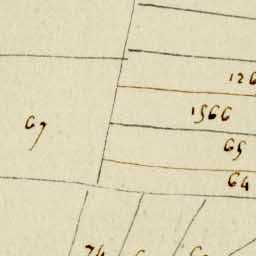 126
1566
67
65
64
74